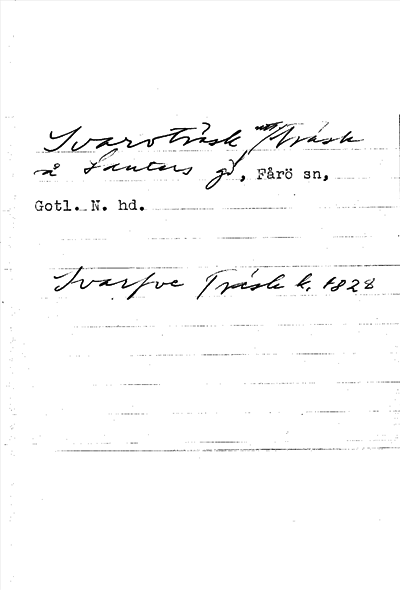 Svarvträsk Träsk
å Lauters gd, Fårö sn,
Gotl. N. hd.
Svarfve Träsk k. 1828